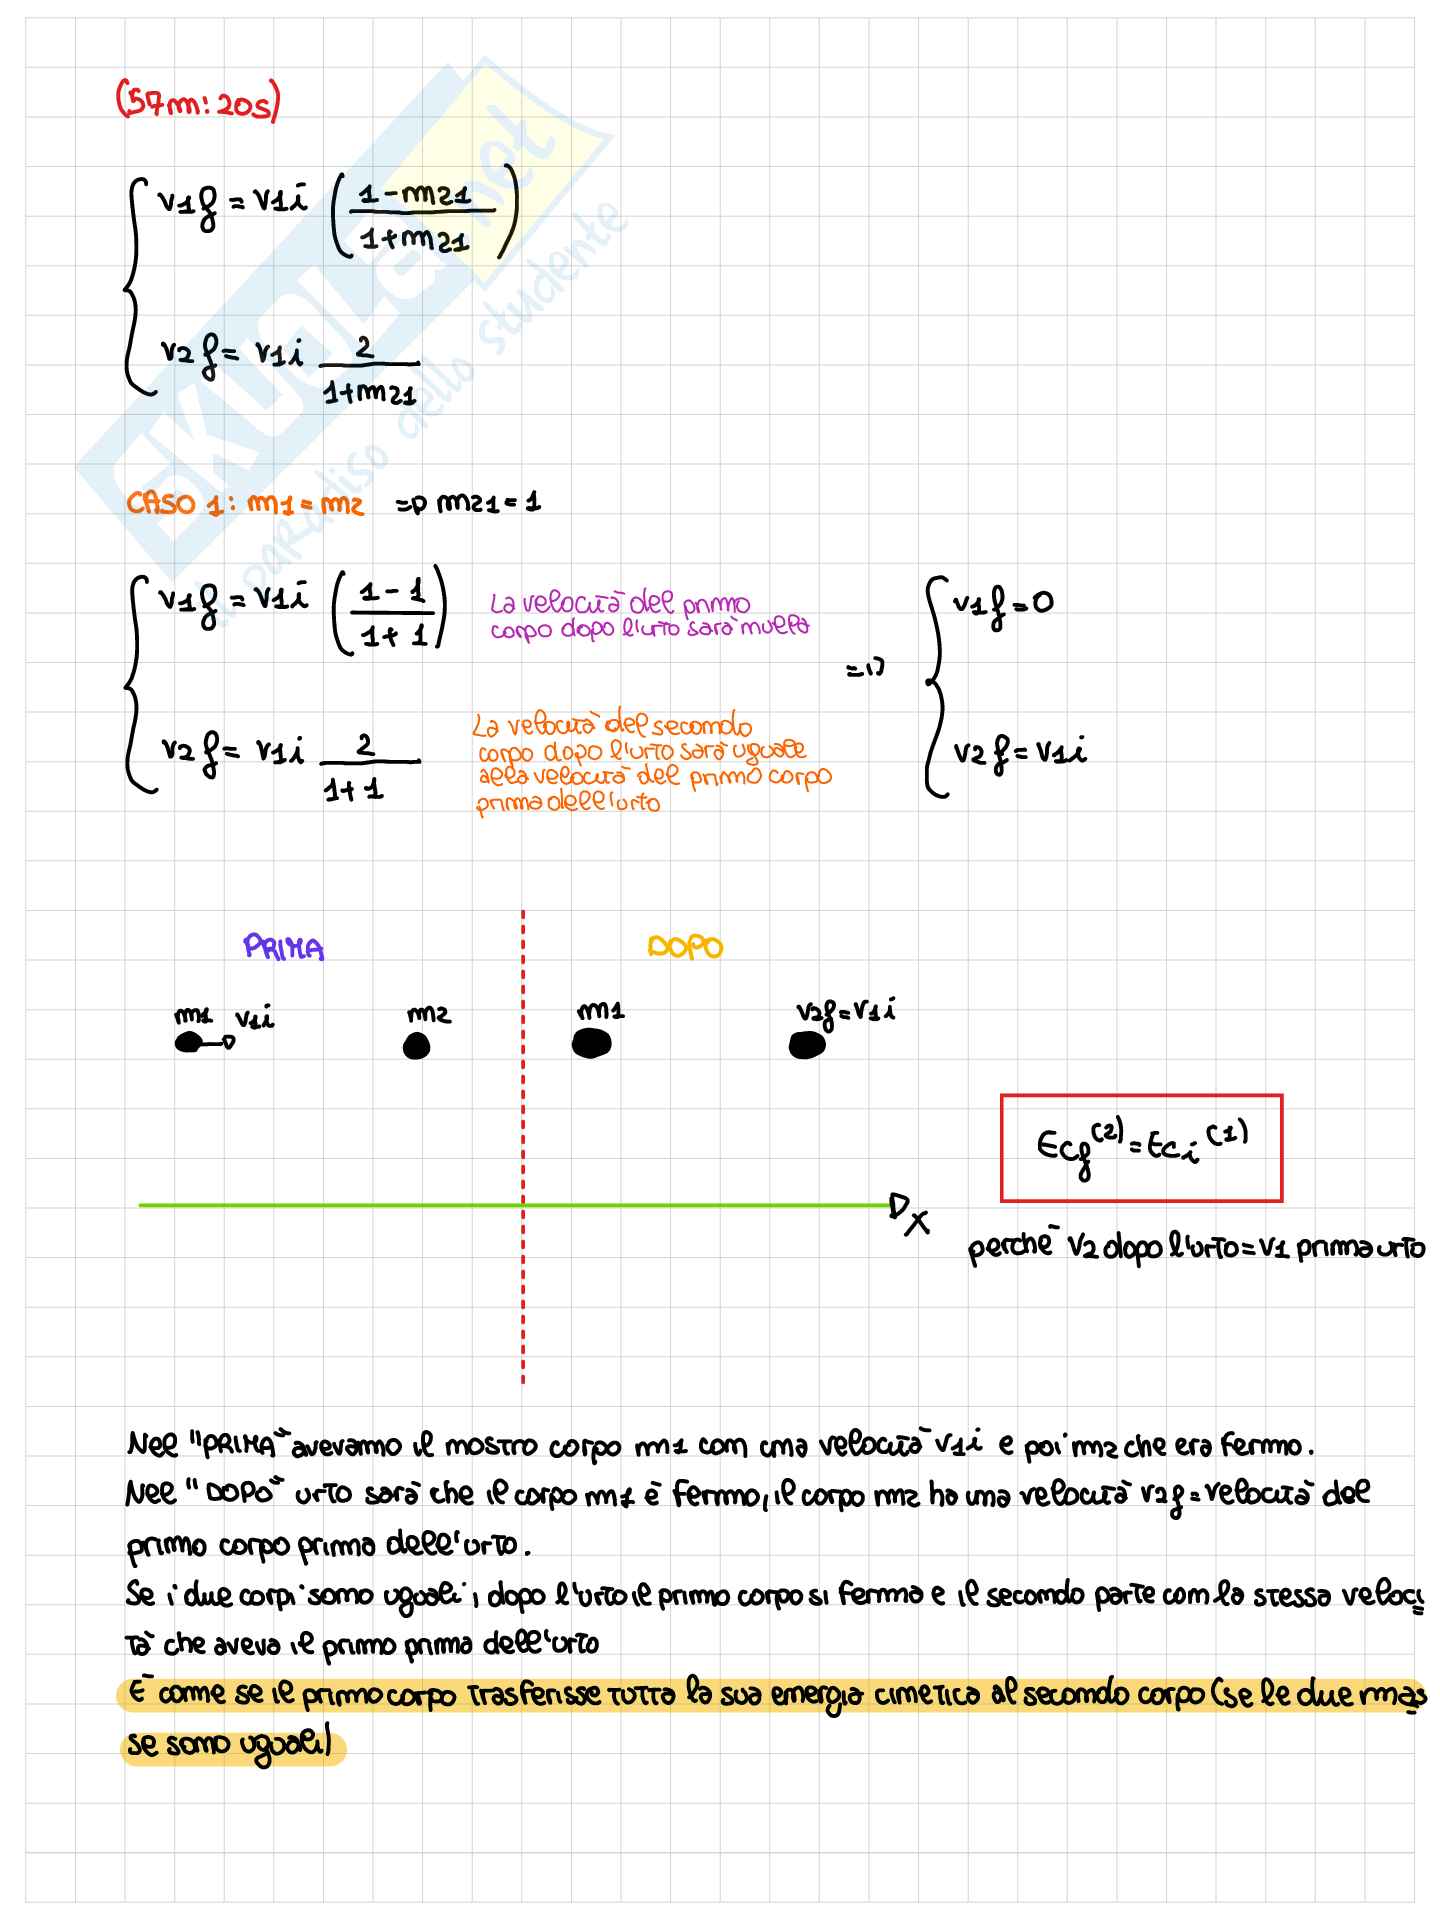 (57m:20s)
v1f = v1i ( 1-m21 / 1+m21 )
v2f = v1i 2 / 1+m21
CASO 1: m1=m2 => m21=1
v1f = v1i ( 1-1 / 1+1 )
La velocità del primo
corpo dopo l'urto sarà nulla
v2f = v1i 2 / 1+1
La velocità del secondo
corpo dopo l'urto sarà uguale
alla velocità del primo corpo
prima dell'urto
=>
v1f=0
v2f=v1i
PRIMA
DOPO
m1 v1i
m2
m1
v2f=v1i
Ecf(2) = Eci(1)
x
perchè v2 dopo l'urto=v1 prima urto
Nel "PRIMA" avevamo il nostro corpo m1 con una velocità v1i e poi m2 che era fermo.
Nel "DOPO" urto sarà che il corpo m1 è fermo, il corpo m2 ha una velocità v2f = velocità del
primo corpo prima dell'urto.
Se i due corpi sono uguali, dopo l'urto il primo corpo si ferma e il secondo parte con la stessa veloci
tà che aveva il primo prima dell'urto
È come se il primo corpo trasferisse tutta la sua energia cinetica al secondo corpo (se le due mas
se sono uguali)
SKUOLA.net
il paradiso dello studente